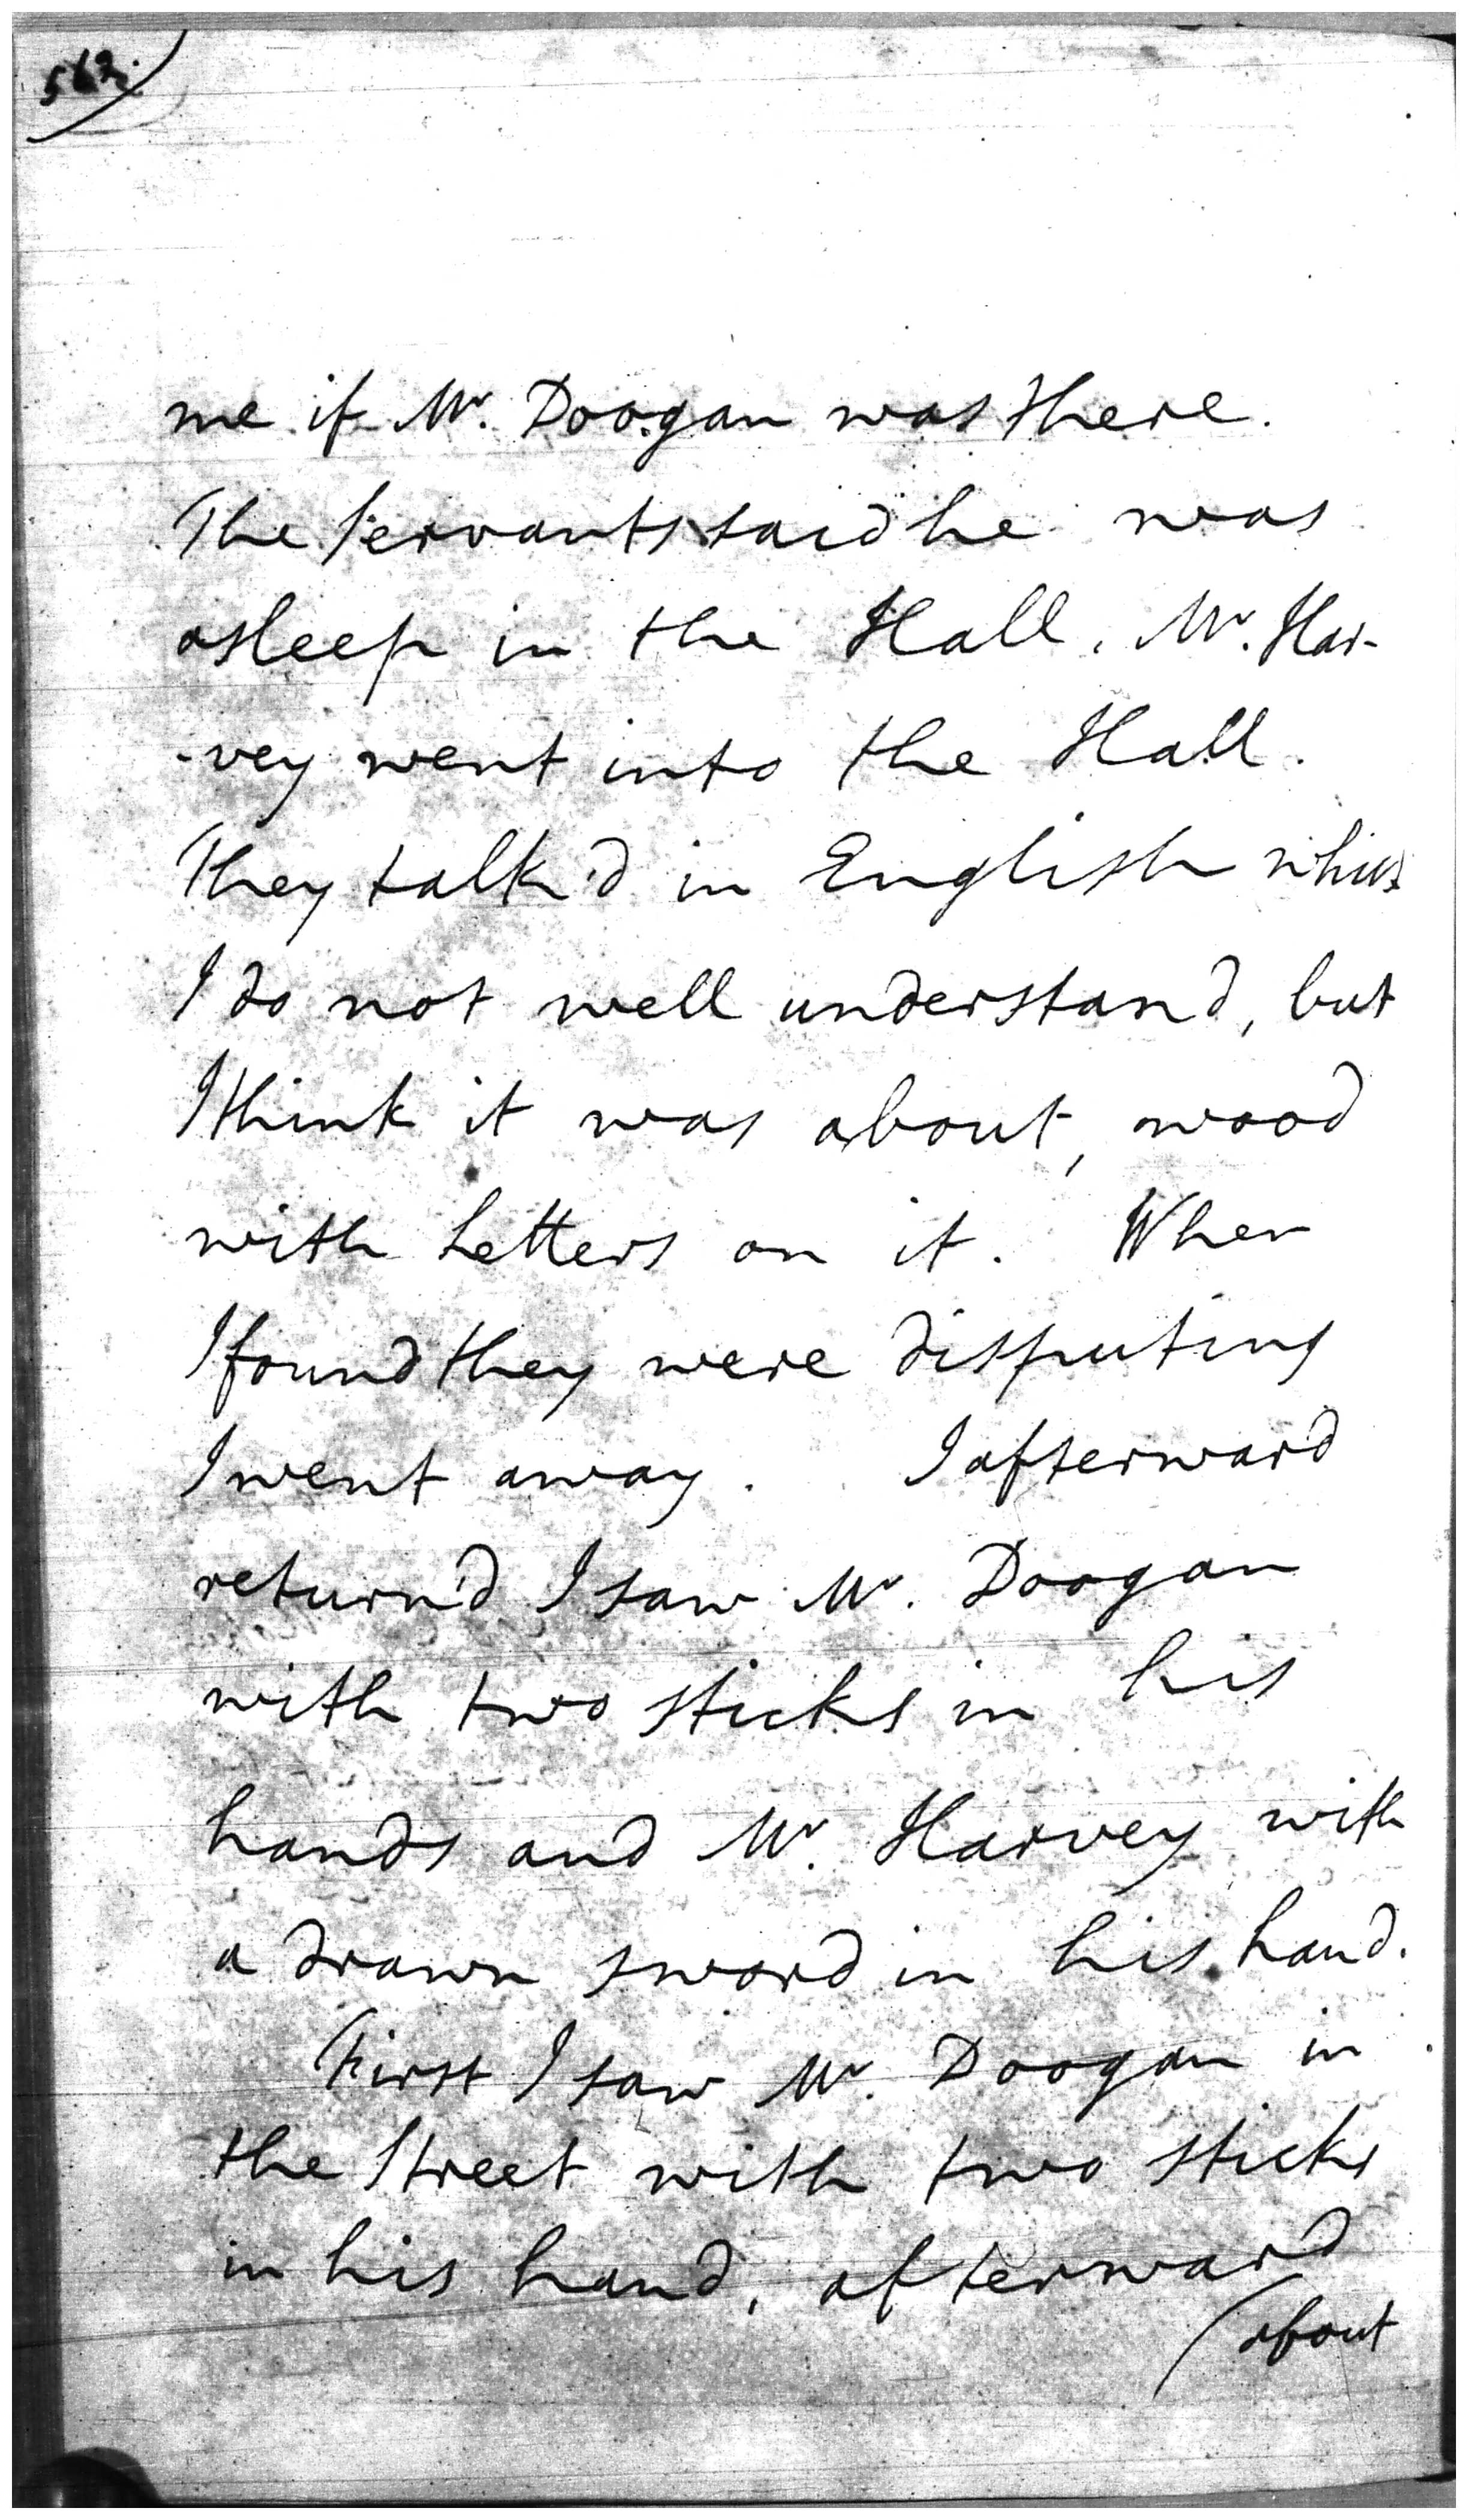 562.
me if Mr. Doogan was there.
The Servants said he was
asleep in the Hall, Mr. Har-
-vey went into the Hall.
They talk'd in English which
I do not well understand, but
I think it was about, wood
with Letters on it. When
I found they were disputing
I went away. I afterward
return'd I saw Mr. Doogan
with two sticks in his
hands and Mr. Harvey with
a drawn sword in his hand.
First I saw Mr. Doogan in
the Street with two sticks
in his hand, afterward
(about